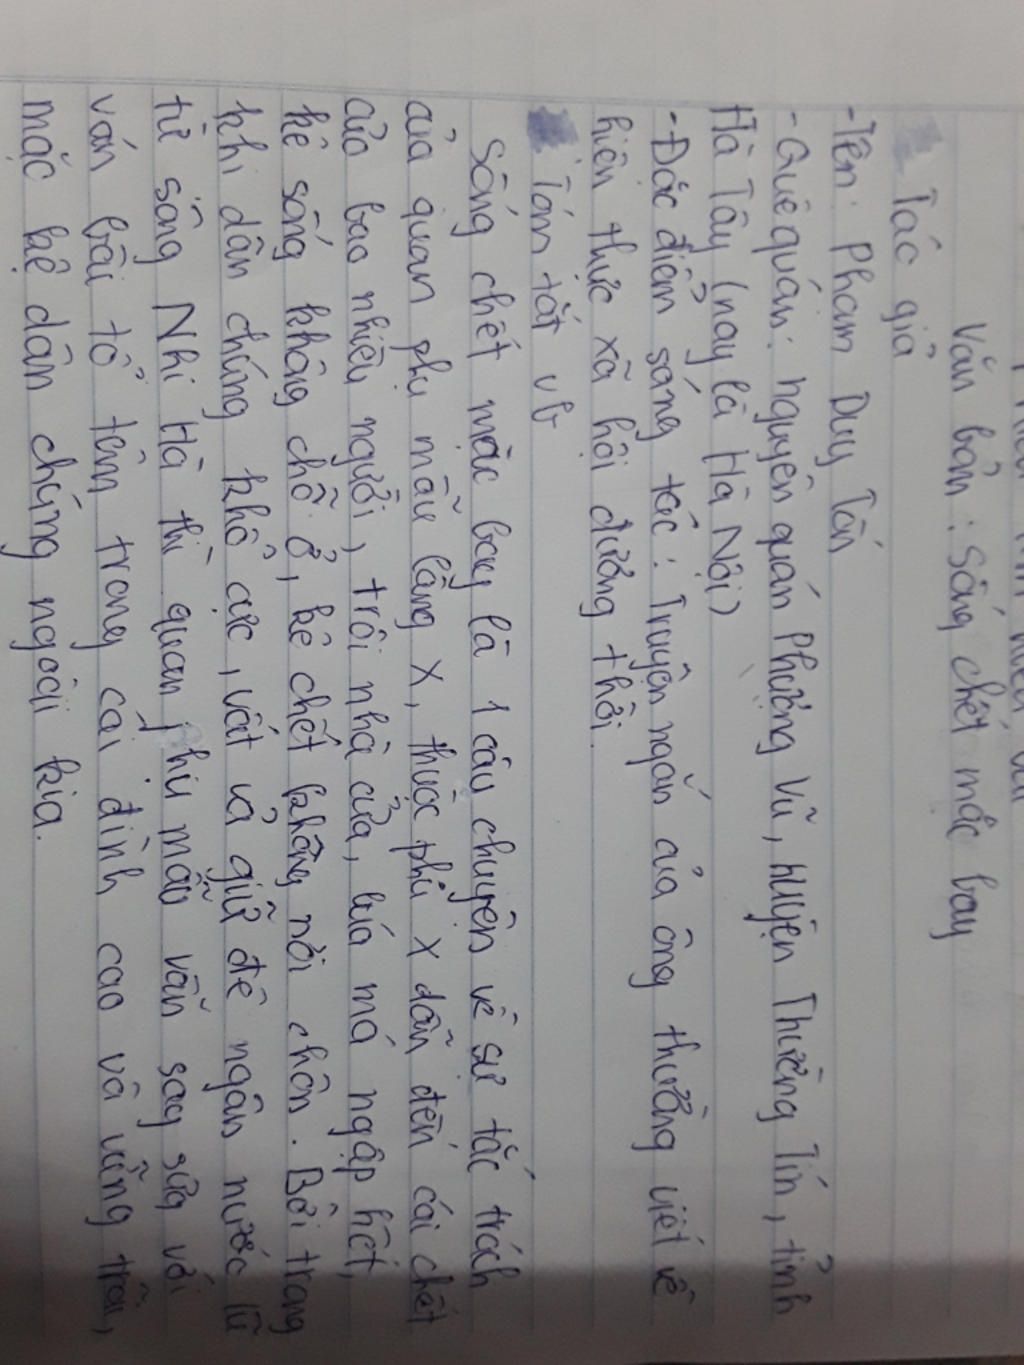 Văn bản: Sống chết mặc bay
Tác giả
-Tên: Phạm Duy Tốn
-Quê quán: nguyên quán Phượng Vũ, huyện Thường Tín, tỉnh
Hà Tây (nay là Hà Nội)
-Đặc điểm sáng tác: Truyện ngắn của ông thường viết về
hiện thực xã hội đương thời.
Tóm tắt vb
Sống chết mặc bay là 1 câu chuyện về sự tắc trách
của quan phụ mẫu làng X, thuộc phủ X dẫn đến cái chết
của bao nhiêu người, trôi nhà cửa, lúa má ngập hết,
kẻ sống không chỗ ở, kẻ chết không nơi chôn. Bởi trong
khi dân chúng khổ cực, vất vả giữ đê ngăn nước lũ
từ sông Nhị Hà thì quan phụ mẫu vẫn say sưa với
ván bài tổ tôm trong cái đình cao và vững trãi,
mặc kệ dân chúng ngoài kia.